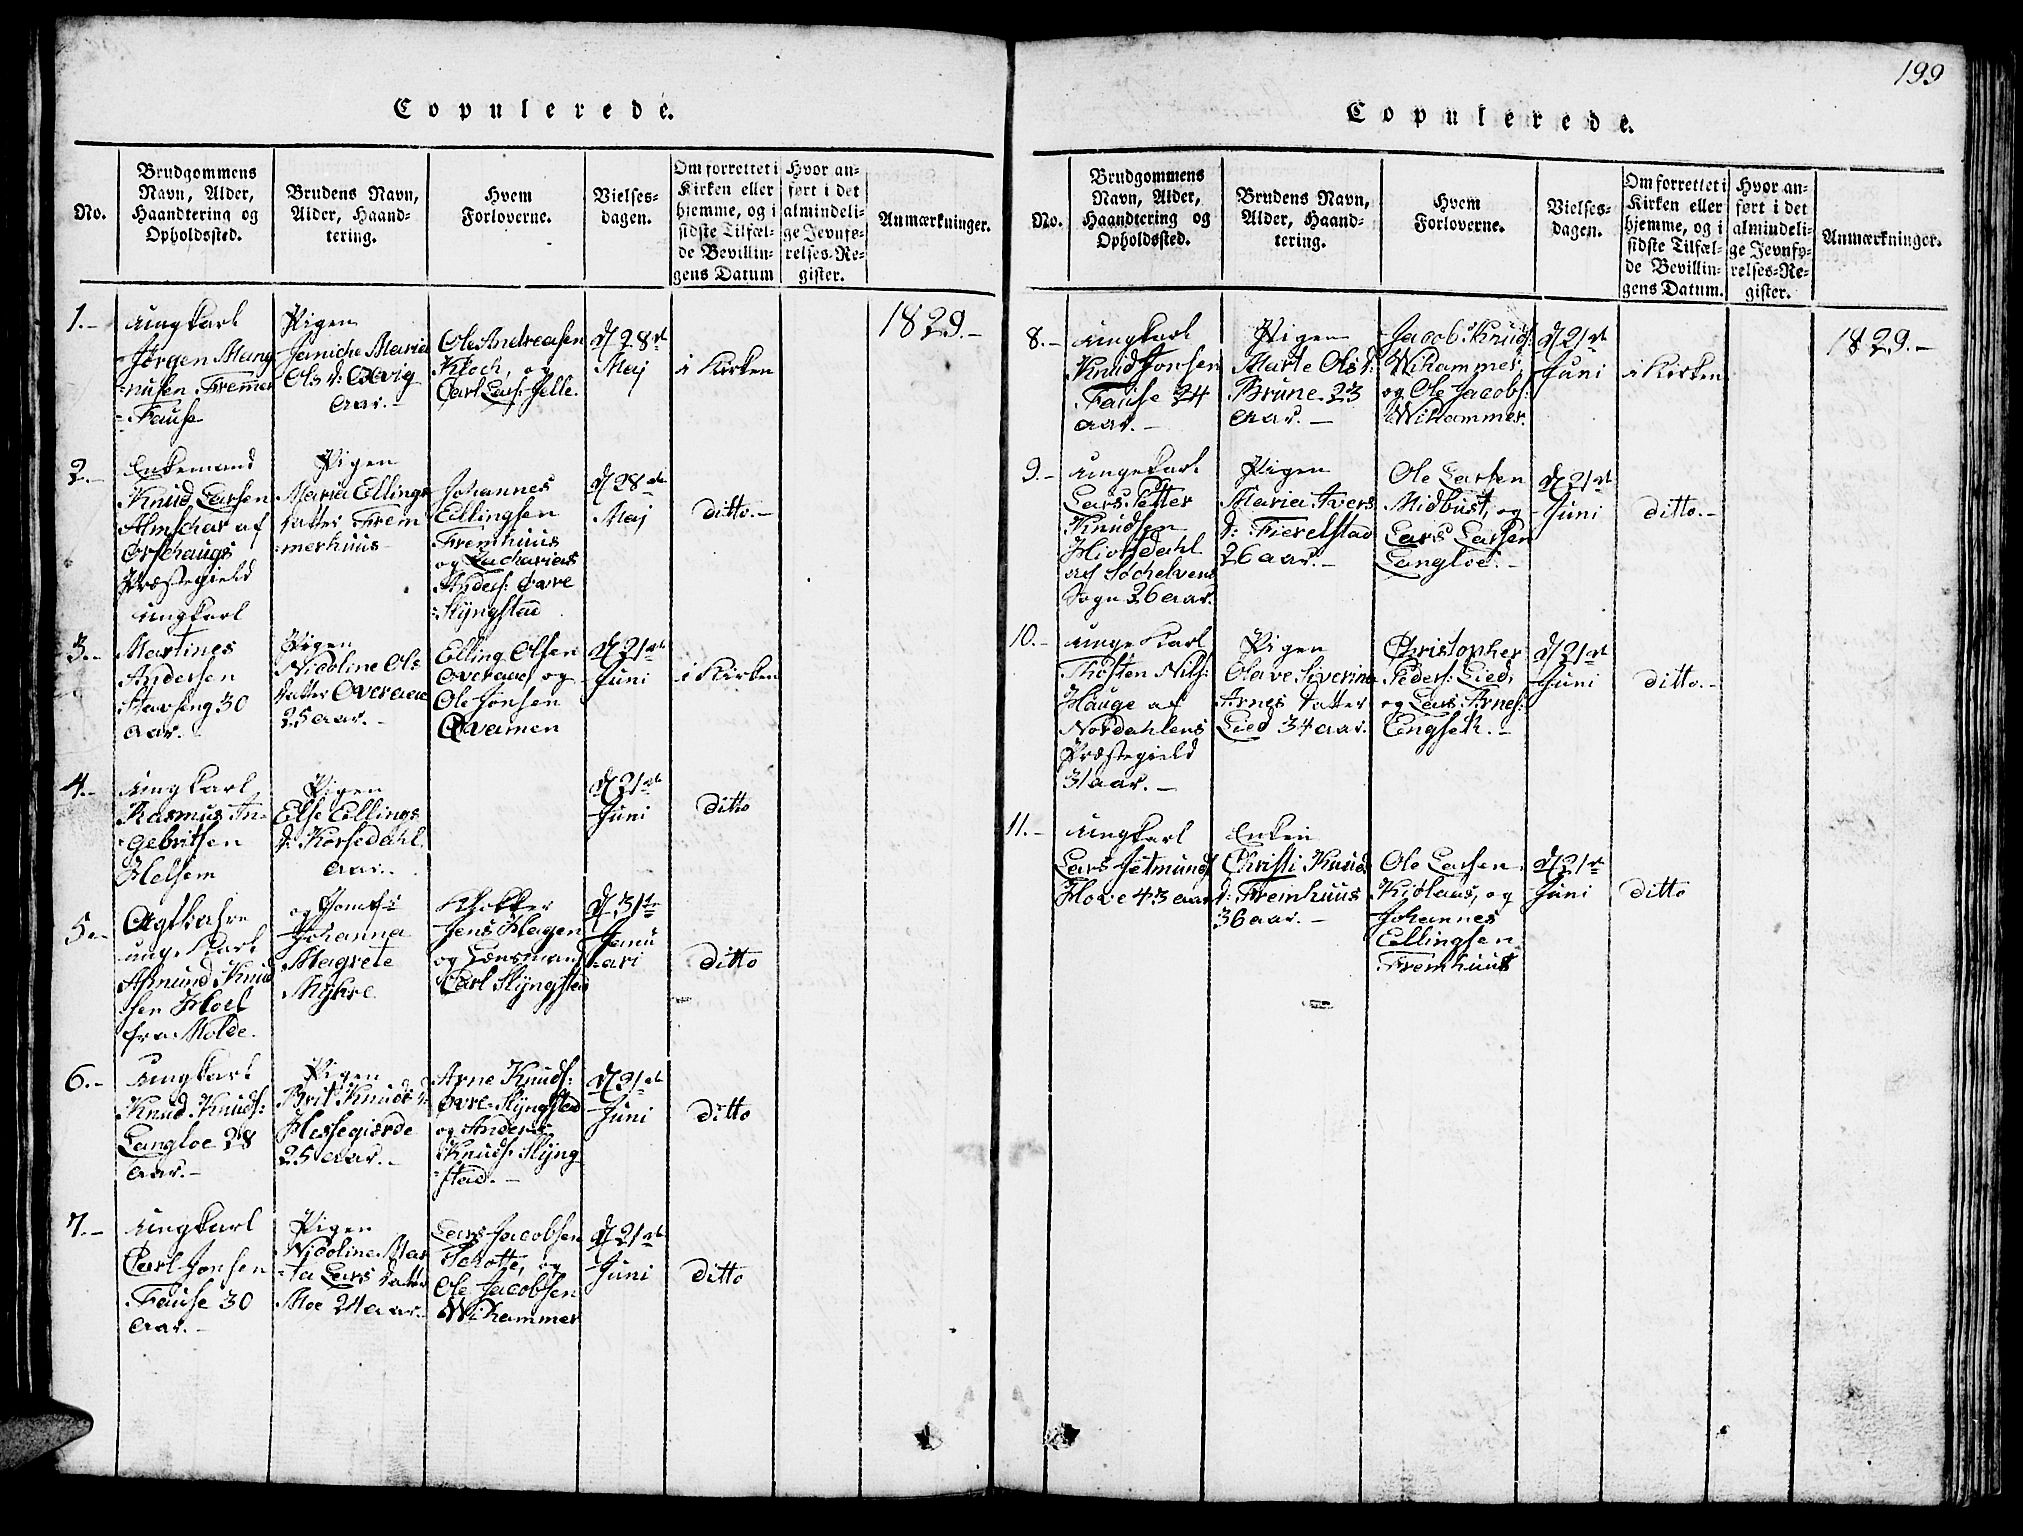 199
Copulerede.
No.
Brudgommens
Navn, Alder,
Haandtering og
Opholdssted.
Brudens Navn,
Alder, Haand-
tering.
Hvem
Forloverne.
Vielses-
dagen.
Om forrettet i
Kirken eller
hjemme, og i
sidste Tilfæl-
de Bevillin-
gens Datum
Hvor an-
ført i det
almindeli-
ge Jevnfø-
relses-Re-
gister.
Anmærkninger.
1829.-
1.-
ungkarl
Jørgen Mang
=nusen Fremmer
=Fause
Pigen
Janiche Maria
Ols d: Oxvig
Aar.-
Ole Andreasen
Kloch, og
Carl Lars: Gelle.
d 28de
Maj
i Kirken
2.-
Enkemand
Knud Larsen
Almschar af
Ørschaugs
Præstegield
Pigen
Maria Ellings
datter Frem
=merhuus
Johannes
Ellingsen
Fremhuus
og Zacharias
Anders: Øvre
=Slyngstad
d 28de
Maj
ditto.-
3.-
ungkarl
Martines
Andersen
Stavseng 30
Aar.-
Pigen
Nicoline Ols
datter Overaae
25 Aar.-
Elling Olsen
Overaae og
Ole Jonsen
Qvamen
d 21de
Juni
i Kirken
4.-
ungkarl
Rasmus In-
=gebritsen
Helsem
Pigen
Else Ellings
d: Korsedahl.
Aar.
d 21de
Juni
ditto
5.-
Agtbahre
unge Karl
Asmund Knud
sen Hoel
fra Molde.
og Jomfr:
Johanna
Magrete
Myhre
Klokker
Jens Hagen
og Lænsmand
Carl Slyngstad
d 31te
Janu
=ari
ditto
6.-
ungkarl
Knud Knuds:
Langloe 28
Aar.-
Pigen
Brit Knuds d:
Hessegierde
25 Aar.-
Arne Knuds:
Øvre-Slyngstad
og Anders
Knuds: Slyng
=stad.-
d 21de
Juni
ditto
7.-
ungkarl
Carl Jonsen
Fause 30
Aar.-
Pigen
Nicolina Mar
=ta Lars datter
Moe 24 aar.-
Lars Jacobsen
Skotte, og
Ole Jacobsen
Wihammer
d 21de
Juni
ditto
Copulerede.
No.
Brudgommens
Navn, Alder,
Haandtering og
Opholdssted.
Brudens Navn,
Alder, Haand-
tering.
Hvem
Forloverne.
Vielses-
dagen.
Om forrettet i
Kirken eller
hjemme, og i
sidste Tilfæl-
de Bevillin-
gens Datum.
Hvor an-
ført i det
almindeli-
ge Jevnfø-
relses-Re-
gister.
Anmærkninger.
1829.-
8.-
ungkarl
Knud Jonsen
Fause 34
Aar.-
Pigen
Marte Ols d:
Brune 23
Aar.-
Jacob Knuds:
Wihammer,
og Ole Jacobs:
Wihammer.
d 21de
Juni
i Kirken
9.-
ungekarl
Lars Petter
Knudsen
Hiordahl
af Søchelvens
Sogn 26 aar.
Pigen
Maria Ivers
d: Fierelstad
26 aar.-
Ole Larsen
Midbust, og
Lars Larsen
Langloe.-
d 21de
Juni
ditto.-
10.-
unge Karl
Thosten Nils:
Hauge af
Nordahlens
Præstegield
31 aar.-
Pigen
Olave Siverine
Arnes datter
Lied 34 aar.
Christopher
Peders: Lied,
og Lars Arnes:
Engset.-
d 21de
Juni
ditto.-
11.-
ungkarl
Lars Jetmunds
Hove 43 aar
Enken
Christi Knuds
d: Fremhuus
36 aar.-
Ole Larsen
Kiølaas, og
Johannes
Ellingsen
Fremhuus
d 21de
Juni
ditto